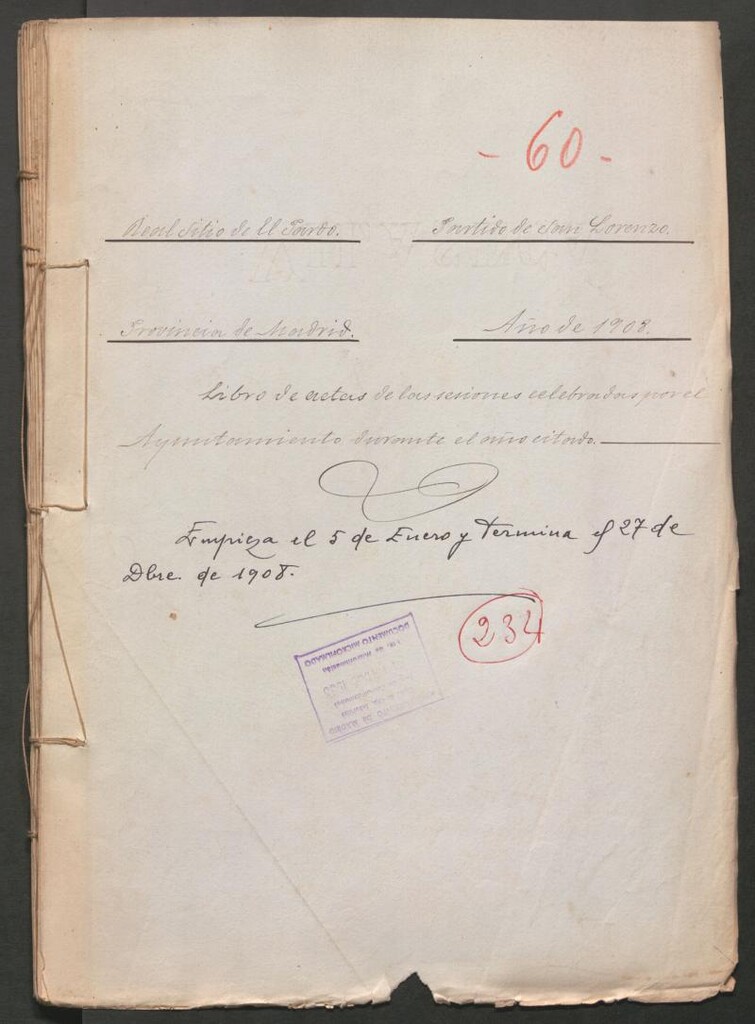 - 60 -
Real Sitio de El Pardo. Partido de San Lorenzo.
Provincia de Madrid. Año de 1908.
Libro de actas de las sesiones celebradas por el
Ayuntamiento durante el año citado.
Empieza el 5 de Enero y Termina el 27 de
Dbre. de 1908.
234
DOCUMENTO MICROFILMADO